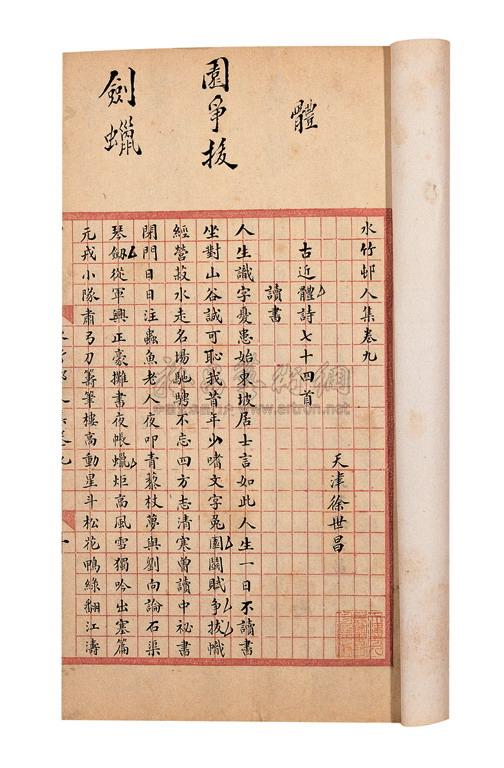 體
園爭拔
劍蠟
水竹邨人集卷九
天津徐世昌
古近體詩七十四首
讀書
人生識字憂患始東坡居士言如此人生一日不讀書
坐對山谷誠可恥我昔年少嗜文字兔園鬭賦爭拔幟
經營菽水走名場馳騁不忘四方志清寒曾讀中祕書
閑門日日注蟲魚老人夜叩青藜杖夢與劉向論石渠
琴劔從軍興正豪攤書夜帳蠟炬高風雪獨吟出塞篇
元戎小隊肅弓刀籌筆樓高動星斗松花鴨綠翻江濤